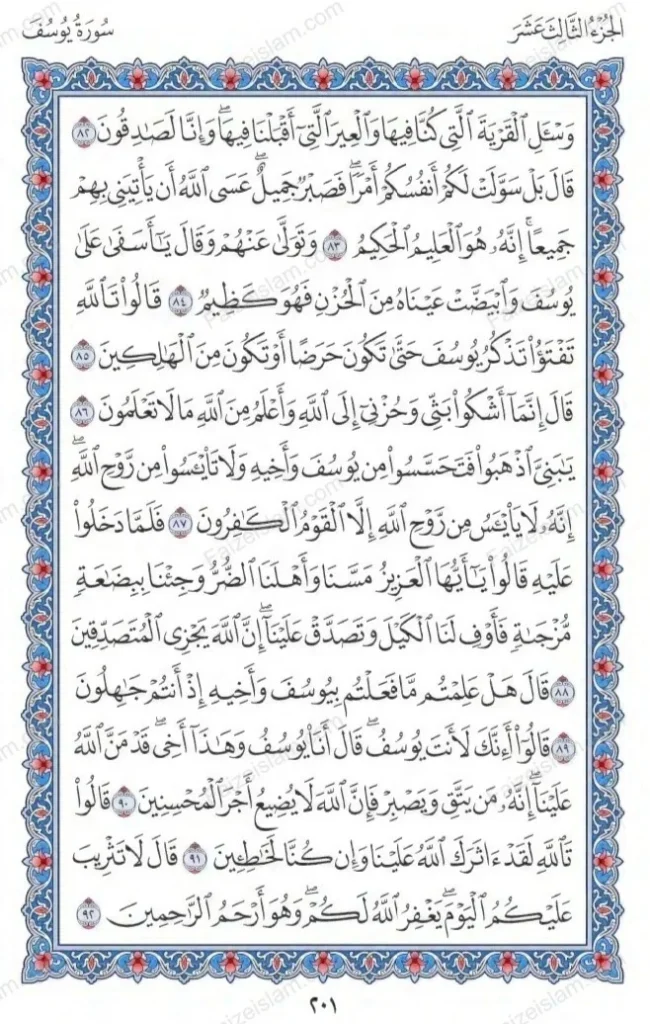 الجزء الثالث عشر
سورة يوسف
وَسْـَٔلِ ٱلْقَرْيَةَ ٱلَّتِى كُنَّا فِيهَا وَٱلْعِيرَ ٱلَّتِىٓ أَقْبَلْنَا فِيهَا ۖ وَإِنَّا لَصَـٰدِقُونَ ٨٢
قَالَ بَلْ سَوَّلَتْ لَكُمْ أَنفُسُكُمْ أَمْرًا ۖ فَصَبْرٌ جَمِيلٌ ۖ عَسَى ٱللَّهُ أَن يَأْتِيَنِى بِهِمْ
جَمِيعًا ۚ إِنَّهُۥ هُوَ ٱلْعَلِيمُ ٱلْحَكِيمُ ٨٣ وَتَوَلَّىٰ عَنْهُمْ وَقَالَ يَـٰٓأَسَفَىٰ عَلَىٰ
يُوسُفَ وَٱبْيَضَّتْ عَيْنَاهُ مِنَ ٱلْحُزْنِ فَهُوَ كَظِيمٌ ٨٤ قَالُوا۟ تَٱللَّهِ
تَفْتَؤُا۟ تَذْكُرُ يُوسُفَ حَتَّىٰ تَكُونَ حَرَضًا أَوْ تَكُونَ مِنَ ٱلْهَـٰلِكِينَ ٨٥
قَالَ إِنَّمَآ أَشْكُوا۟ بَثِّى وَحُزْنِىٓ إِلَى ٱللَّهِ وَأَعْلَمُ مِنَ ٱللَّهِ مَا لَا تَعْلَمُونَ ٨٦
يَـٰبَنِىَّ ٱذْهَبُوا۟ فَتَحَسَّسُوا۟ مِن يُوسُفَ وَأَخِيهِ وَلَا تَا۟يْـَٔسُوا۟ مِن رَّوْحِ ٱللَّهِ ۖ
إِنَّهُۥ لَا يَا۟يْـَٔسُ مِن رَّوْحِ ٱللَّهِ إِلَّا ٱلْقَوْمُ ٱلْكَـٰفِرُونَ ٨٧ فَلَمَّا دَخَلُوا۟
عَلَيْهِ قَالُوا۟ يَـٰٓأَيُّهَا ٱلْعَزِيزُ مَسَّنَا وَأَهْلَنَا ٱلضُّرُّ وَجِئْنَا بِبِضَـٰعَةٍ
مُّزْجَىٰةٍ فَأَوْفِ لَنَا ٱلْكَيْلَ وَتَصَدَّقْ عَلَيْنَآ ۖ إِنَّ ٱللَّهَ يَجْزِى ٱلْمُتَصَدِّقِينَ
٨٨ قَالَ هَلْ عَلِمْتُم مَّا فَعَلْتُم بِيُوسُفَ وَأَخِيهِ إِذْ أَنتُمْ جَـٰهِلُونَ
٨٩ قَالُوٓا۟ أَءِنَّكَ لَأَنتَ يُوسُفُ ۖ قَالَ أَنَا۠ يُوسُفُ وَهَـٰذَآ أَخِى ۖ قَدْ مَنَّ ٱللَّهُ
عَلَيْنَآ ۖ إِنَّهُۥ مَن يَتَّقِ وَيَصْبِرْ فَإِنَّ ٱللَّهَ لَا يُضِيعُ أَجْرَ ٱلْمُحْسِنِينَ ٩٠ قَالُوا۟
تَٱللَّهِ لَقَدْ ءَاثَرَكَ ٱللَّهُ عَلَيْنَا وَإِن كُنَّا لَخَـٰطِـِٔينَ ٩١ قَالَ لَا تَثْرِيبَ
عَلَيْكُمُ ٱلْيَوْمَ ۖ يَغْفِرُ ٱللَّهُ لَكُمْ ۖ وَهُوَ أَرْحَمُ ٱلرَّٰحِمِينَ ٩٢
٢٠١
Faizeislam.com